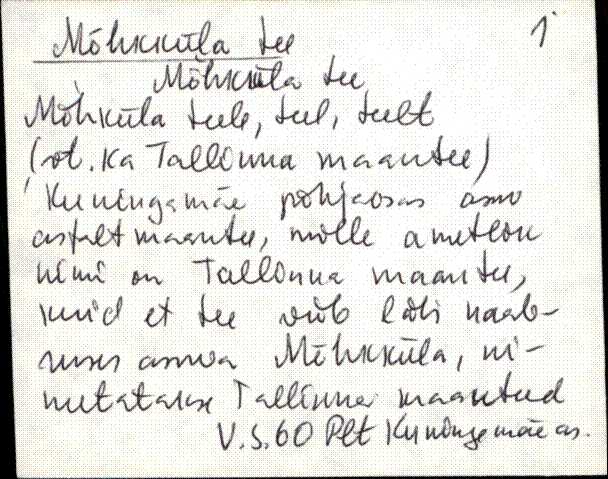 Mõhkküla tee 1
Mõhkküla tee
Mõhküla teele, teel, teelt
(vt. ka Tallinna maantee)
Kuningamäe põhjaosas asuv
asfaltmaantee, mille ametlik
nimi on Tallinna maantee,
kuid et tee viib läbi naab-
ruses asuva Mõhkküla, ni-
metatakse Tallinna maanteed
V.S.60 Plt Kuningamäe as.